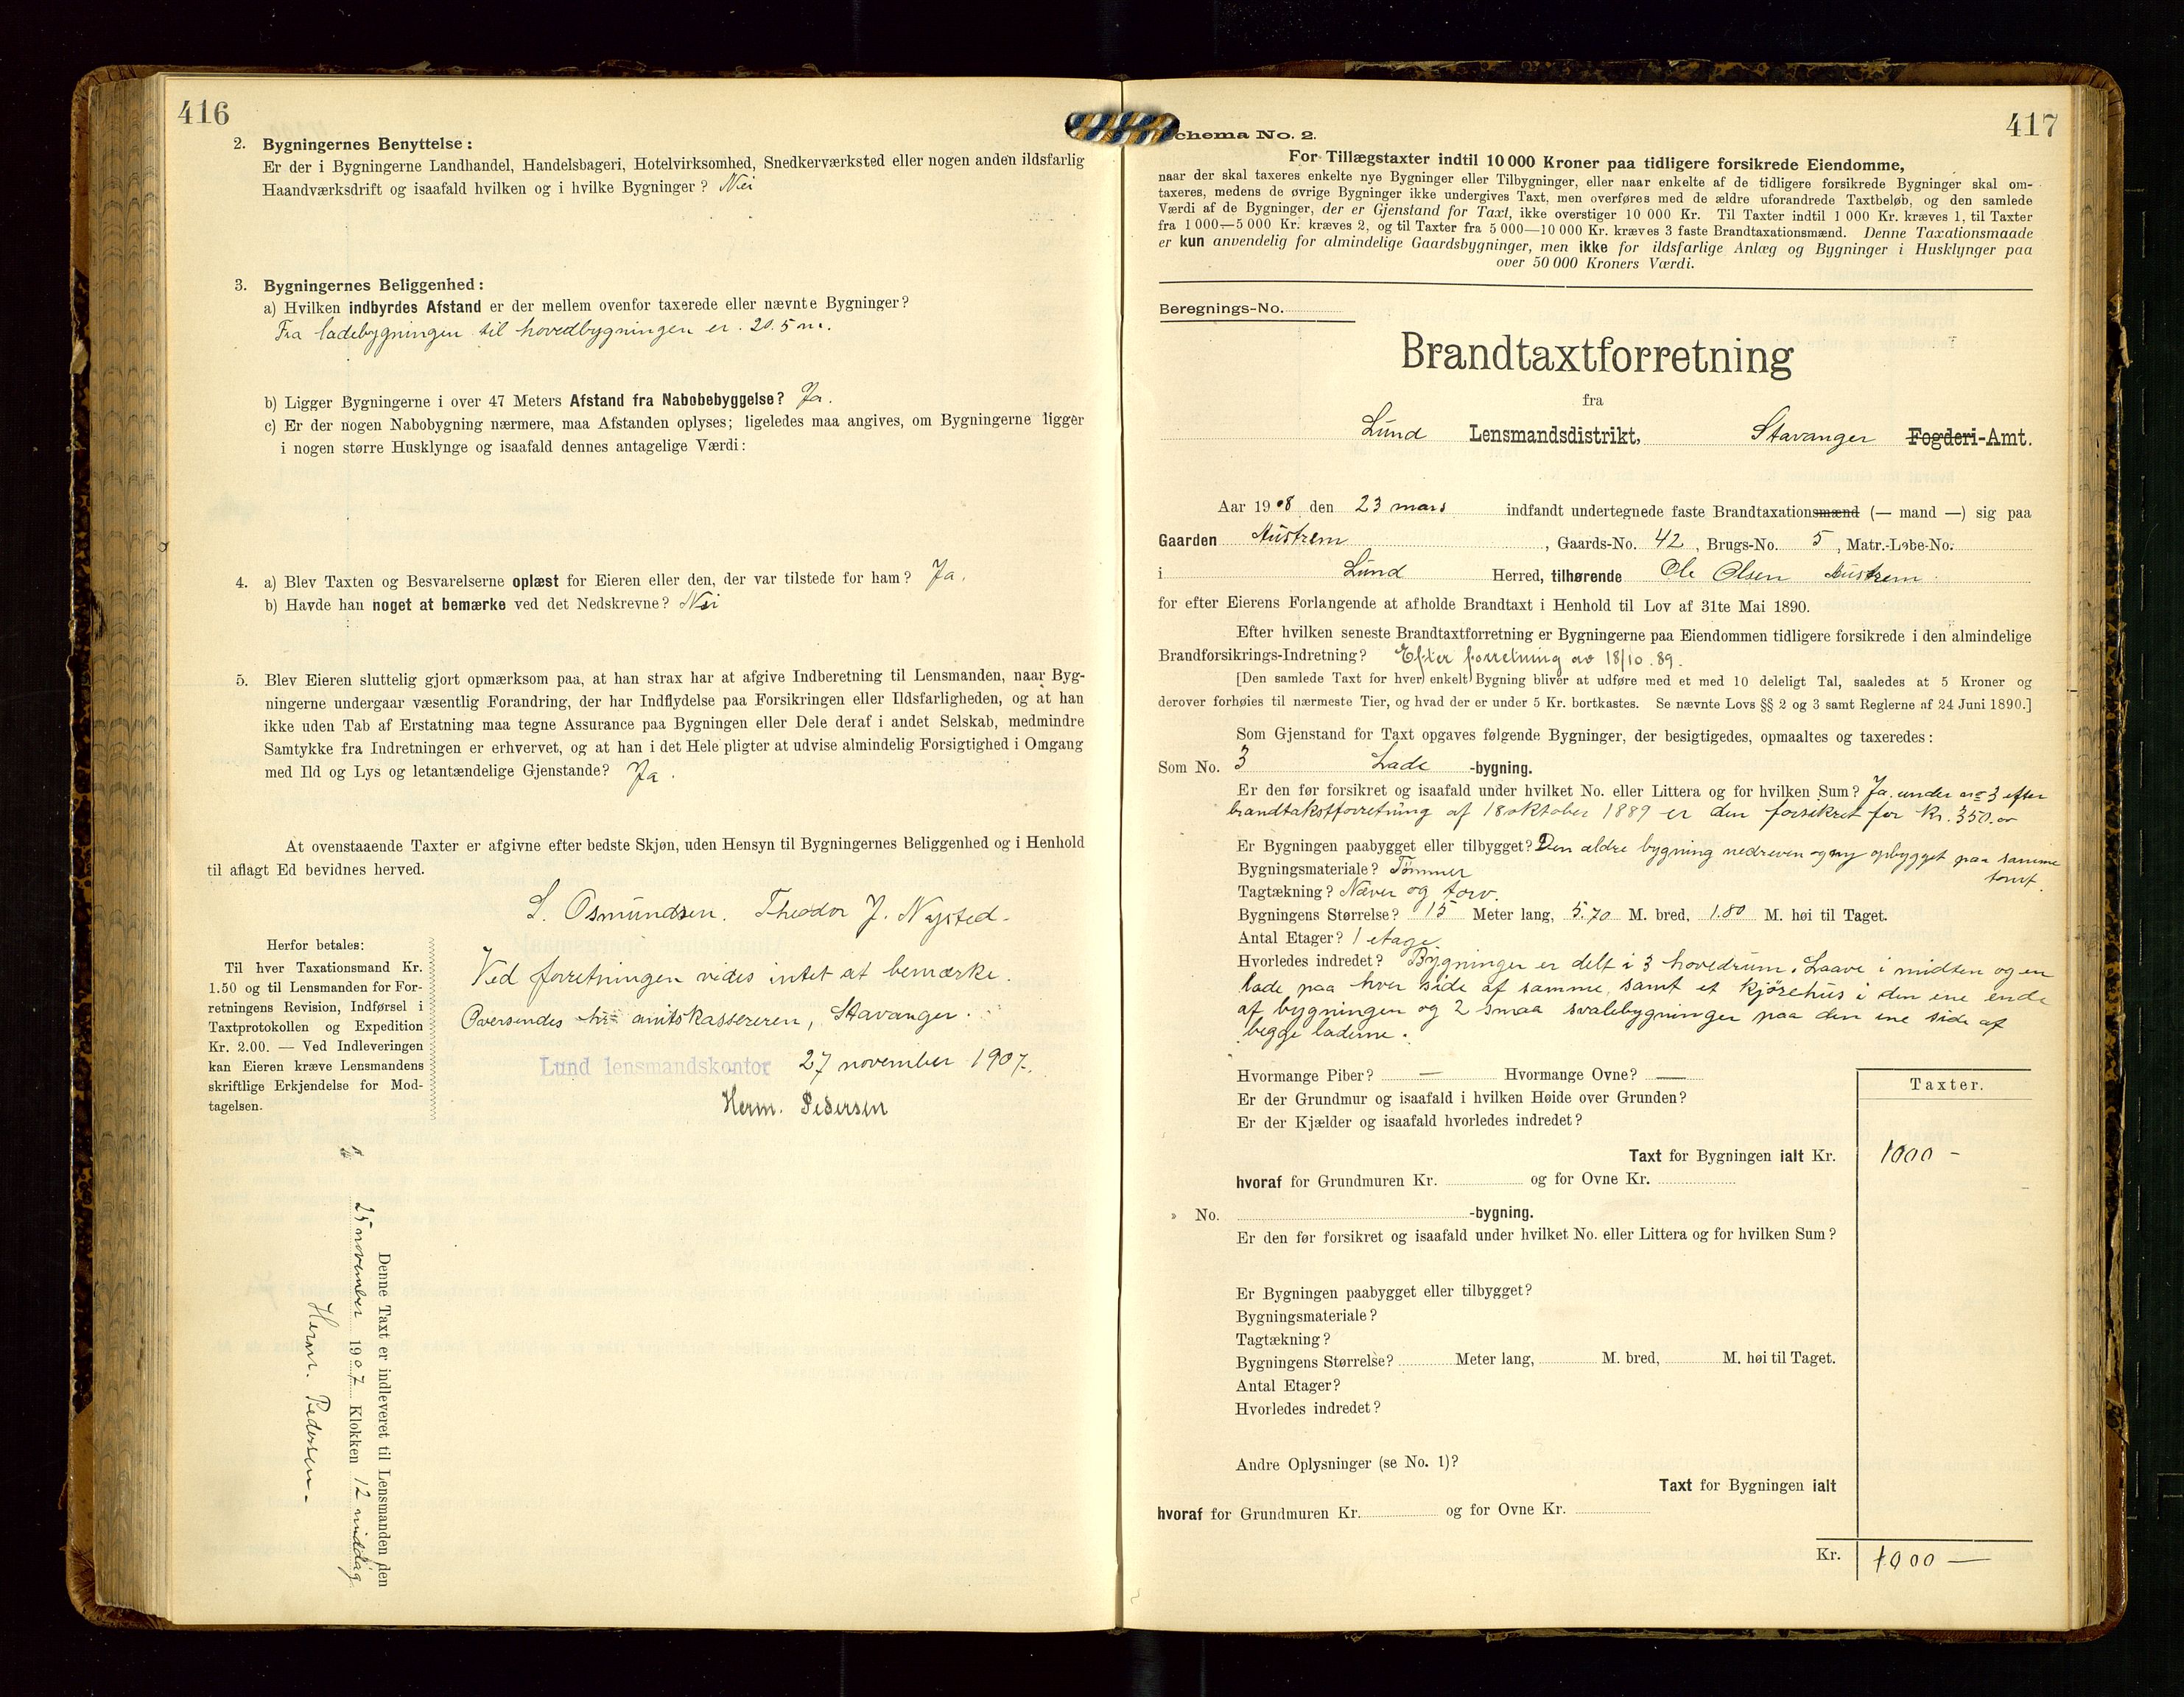 416
2. Bygningernes Benyttelse:
Er der i Bygningerne Landhandel, Handelsbageri, Hotelvirksomhed, Snedkerværksted eller nogen anden ildsfarlig
Haandværksdrift og isaafald hvilken og i hvilke Bygninger? Nei
3. Bygningernes Beliggenhed:
a) Hvilken indbyrdes Afstand er der mellem ovenfor taxerede eller nævnte Bygninger?
Fra ladebygningen til hovedbygningen er 20.5 m.
b) Ligger Bygningerne i over 47 Meters Afstand fra Nabobebyggelse? Ja.
c) Er der nogen Nabobygning nærmere, maa Afstanden oplyses; ligeledes maa angives, om Bygningerne ligger
i nogen større Husklynge og isaafald dennes antagelige Værdi:
4. a) Blev Taxten og Besvarelserne oplæst for Eieren eller den, der var tilstede for ham? Ja.
b) Havde han noget at bemærke ved det Nedskrevne? Nei
5. Blev Eieren sluttelig gjort opmærksom paa, at han strax har at afgive Indberetning til Lensmanden, naar Byg-
ningerne undergaar væsentlig Forandring, der har Indflydelse paa Forsikringen eller Ildsfarligheden, og at han
ikke uden Tab af Erstatning maa tegne Assurance paa Bygningen eller Dele deraf i andet Selskab, medmindre
Samtykke fra Indretningen er erhvervet, og at han i det Hele pligter at udvise almindelig Forsigtighed i Omgang
med Ild og Lys og letantændelige Gjenstande? Ja.
At ovenstaaende Taxter er afgivne efter bedste Skjøn, uden Hensyn til Bygningernes Beliggenhed og i Henhold
til aflagt Ed bevidnes herved.
L. Osmundsen. Theodor J. Nysted.
Herfor betales:
Til hver Taxationsmand Kr.
1.50 og til Lensmanden for For-
retningens Revision, Indførsel i
Taxtprotokollen og Expedition
Kr. 2.00. — Ved Indleveringen
kan Eieren kræve Lensmandens
skriftlige Erkjendelse for Mod-
tagelsen.
Ved forretningen vides intet at bemærke.
Oversendes hr. amtskassereren, Stavanger.
Lund lensmandskontor 27 november 1907.
Herm. Pedersen
Denne Taxt er indleveret til Lensmanden den
25 november 1907 Klokken 12 middag
Herm. Pedersen.
417
Schema No. 2.
For Tillægstaxter indtil 10 000 Kroner paa tidligere forsikrede Eiendomme,
naar der skal taxeres enkelte nye Bygninger eller Tilbygninger, eller naar enkelte af de tidligere forsikrede Bygninger skal om-
taxeres, medens de øvrige Bygninger ikke undergives Taxt, men overføres med de ældre uforandrede Taxtbeløb, og den samlede
Værdi af de Bygninger, der er Gjenstand for Taxt, ikke overstiger 10 000 Kr. Til Taxter indtil 1 000 Kr. kræves 1, til Taxter
fra 1 000—5 000 Kr. kræves 2, og til Taxter fra 5 000—10 000 Kr. kræves 3 faste Brandtaxationsmænd. Denne Taxationsmaade
er kun anvendelig for almindelige Gaardsbygninger, men ikke for ildsfarlige Anlæg og Bygninger i Husklynger paa
over 50 000 Kroners Værdi.
Beregnings-No.
Brandtaxtforretning
fra
Lund Lensmandsdistrikt, Stavanger Fogderi-Amt.
Aar 1908 den 23 mars indfandt undertegnede faste Brandtaxationsmænd (— mand —) sig paa
Gaarden Austrem, Gaards-No. 42, Brugs-No. 5, Matr.-Løbe-No.
i Lund Herred, tilhørende Ole Olsen Austrem
for efter Eierens Forlangende at afholde Brandtaxt i Henhold til Lov af 31te Mai 1890.
Efter hvilken seneste Brandtaxtforretning er Bygningerne paa Eiendommen tidligere forsikrede i den almindelige
Brandforsikrings-Indretning? Efter forretning av 18/10.89.
[Den samlede Taxt for hver enkelt Bygning bliver at udføre med et med 10 deleligt Tal, saaledes at 5 Kroner og
derover forhøies til nærmeste Tier, og hvad der er under 5 Kr. bortkastes. Se nævnte Lovs §§ 2 og 3 samt Reglerne af 24 Juni 1890.]
Som Gjenstand for Taxt opgaves følgende Bygninger, der besigtigedes, opmaaltes og taxeredes:
Som No. 3 Lade -bygning.
Er den før forsikret og isaafald under hvilket No. eller Littera og for hvilken Sum? Ja. under no 3 efter
brandtakstforretning af 18 oktober 1889 er den forsikret for kr. 350.00
Er Bygningen paabygget eller tilbygget? Den ældre bygning nedreven og ny opbygget paa samme
tomt.
Bygningsmateriale? Tømmer
Tagtækning? Næver og torv.
Bygningens Størrelse? 15 Meter lang, 5.70 M. bred, 1.80 M. høi til Taget.
Antal Etager? 1 etage
Hvorledes indredet? Bygninger er delt i 3 hovedrum. Laave i midten og en
lade paa hver side af samme, samt et kjørehus i den ene ende
af bygningen og 2 smaa svalebygninger paa den ene side af
begge laderne.
Hvormange Piber? — Hvormange Ovne? —
Er der Grundmur og isaafald i hvilken Høide over Grunden?
Er der Kjælder og isaafald hvorledes indredet?
Taxter.
Taxt for Bygningen ialt Kr. 1000 -
hvoraf for Grundmuren Kr. og for Ovne Kr.
» No. -bygning.
Er den før forsikret og isaafald under hvilket No. eller Littera og for hvilken Sum?
Er Bygningen paabygget eller tilbygget?
Bygningsmateriale?
Tagtækning?
Bygningens Størrelse? Meter lang, M. bred, M. høi til Taget.
Antal Etager?
Hvorledes indredet?
Andre Oplysninger (se No. 1)?
Taxt for Bygningen ialt
hvoraf for Grundmuren Kr. og for Ovne Kr.
Kr. 1000 —